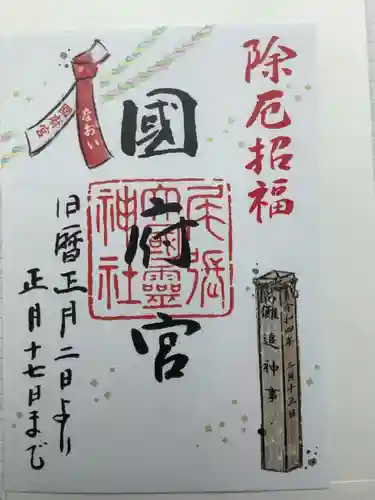 除厄招福
國府宮
尾張大國霊神社
旧暦正月二日より
正月十七日まで
国府宮
なおい
儺追神事
令和四年 二月十三日